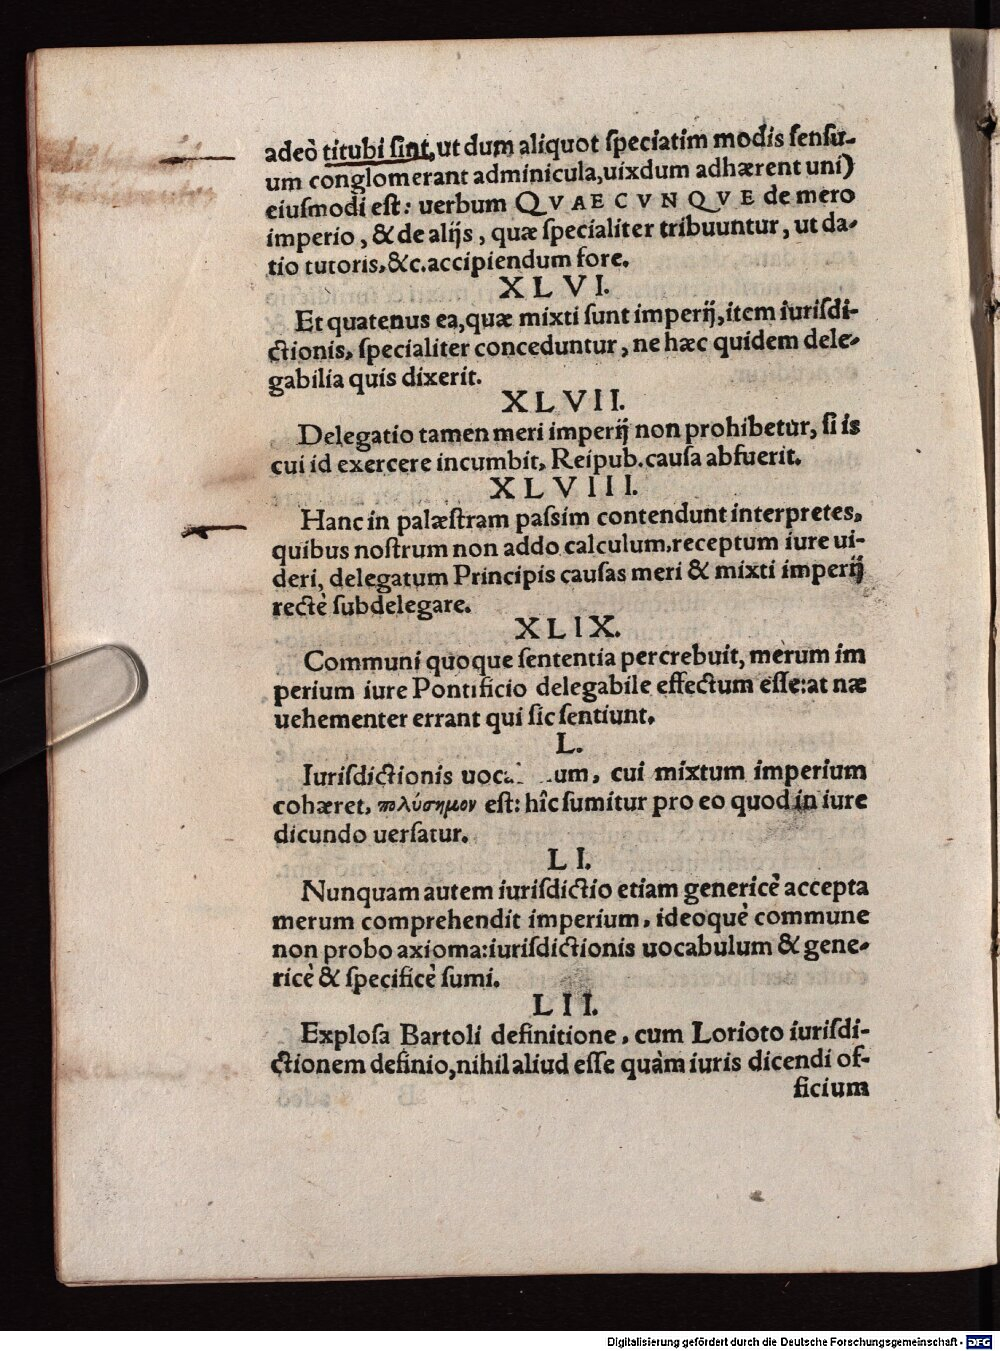 adeò titubi ſint, ut dum aliquot ſpeciatim modis ſenſu-
um conglomerant adminicula, uixdum adhærent uni)
eiuſmodi eſt: uerbum QVAECVNQVE de mero
imperio, & de alijs, quæ ſpecialiter tribuuntur, ut da-
tio tutoris, &c. accipiendum fore.
XLVI.
Et quatenus ea, quæ mixti ſunt imperij, item iuriſdi-
ctionis, ſpecialiter conceduntur, ne hæc quidem dele-
gabilia quis dixerit.
XLVII.
Delegatio tamen meri imperij non prohibetur, ſi is
cui id exercere incumbit, Reipub. cauſa abfuerit.
XLVIII.
Hanc in palæſtram paſsim contendunt interpretes,
quibus noſtrum non addo calculum, receptum iure ui-
deri, delegatum Principis cauſas meri & mixti imperij
rectè ſubdelegare.
XLIX.
Communi quoque ſententia percrebuit, merum im
perium iure Pontificio delegabile effectum eſſe: at næ
uehementer errant qui ſic ſentiunt.
L.
Iuriſdictionis cui mixtum imperium
cohæret, πολύσημον eſt: hîc ſumitur pro eo quod in iure
dicundo uerſatur.
LI.
Nunquam autem iuriſdictio etiam genericè accepta
merum comprehendit imperium, ideoquè commune
non probo axioma: iuriſdictionis uocabulum & gene-
ricè & ſpecificè ſumi.
LII.
Exploſa Bartoli definitione, cum Lorioto iuriſdi-
ctionem definio, nihil aliud eſſe quàm iuris dicendi of-
ficium
Digitalisierung gefördert durch die Deutsche Forschungsgemeinschaft - DFG